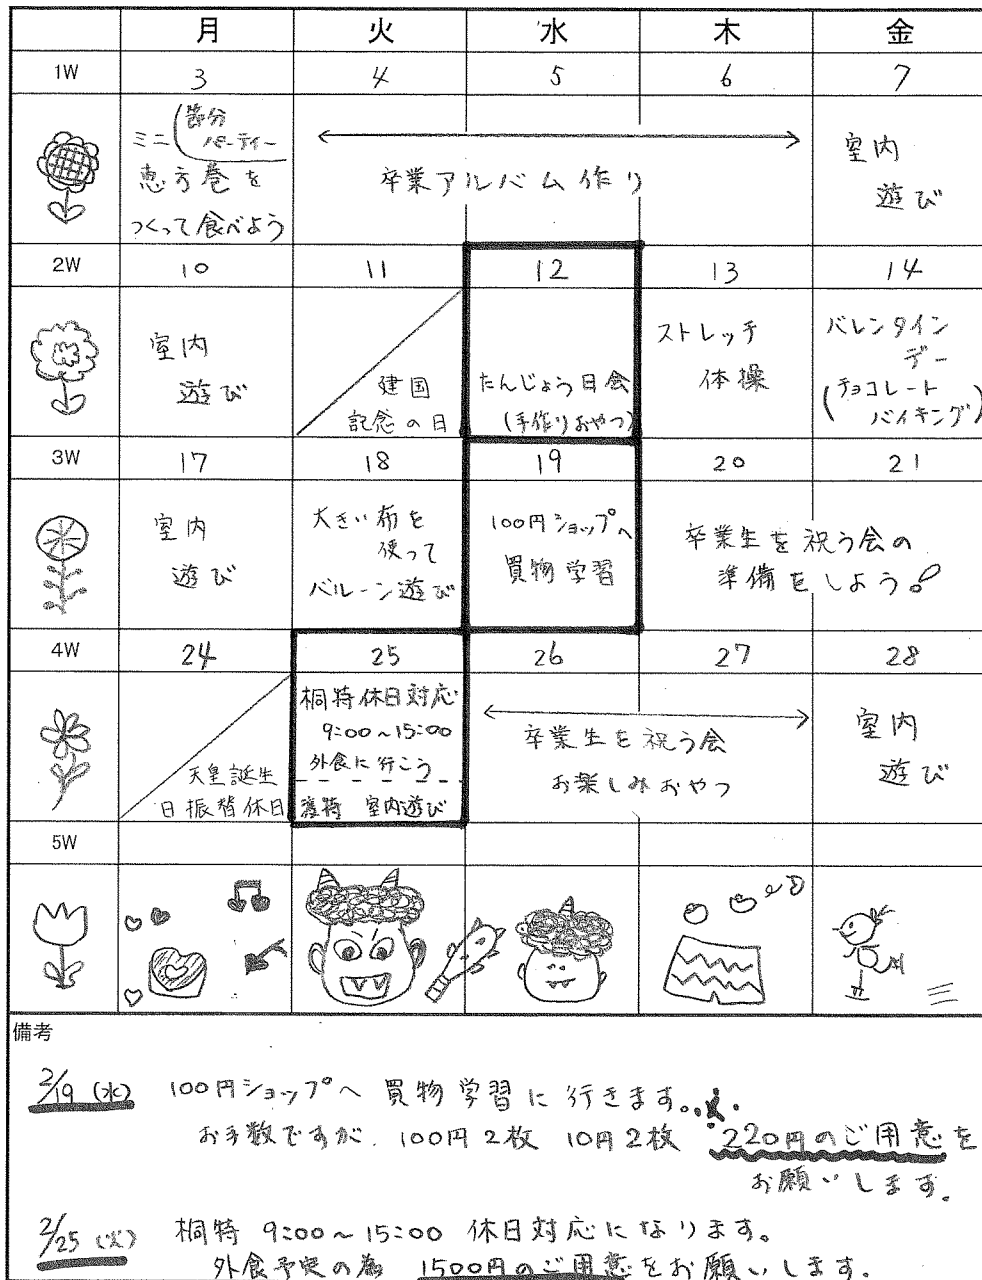 月 火 水 木 金
1W 3 4 5 6 7
ミニ(節分
パーティー
恵方巻を
つくって食べよう
卒業アルバム作り
室内
遊び
2W 10 11 12 13 14
室内
遊び
建国
記念の日
たんじょう日会
(手作りおやつ)
ストレッチ
体操
バレンタイン
デー
(チョコレート
バイキング)
3W 17 18 19 20 21
室内
遊び
大きい布を
使って
バルーン遊び
100円ショップへ
買物学習
卒業生を祝う会の
準備をしよう!
4W 24 25 26 27 28
天皇誕生
日振替休日
桐特休日対応
9:00~15:00
外食に行こう
渡特 室内遊び
卒業生を祝う会
お楽しみおやつ
室内
遊び
5W
備考
2/19(水) 100円ショップへ買物学習に行きます。
お手数ですが、100円2枚 10円2枚 220円のご用意を
お願いします。
2/25(火) 桐特 9:00~15:00 休日対応になります。
外食予定の為 1500円のご用意をお願いします。